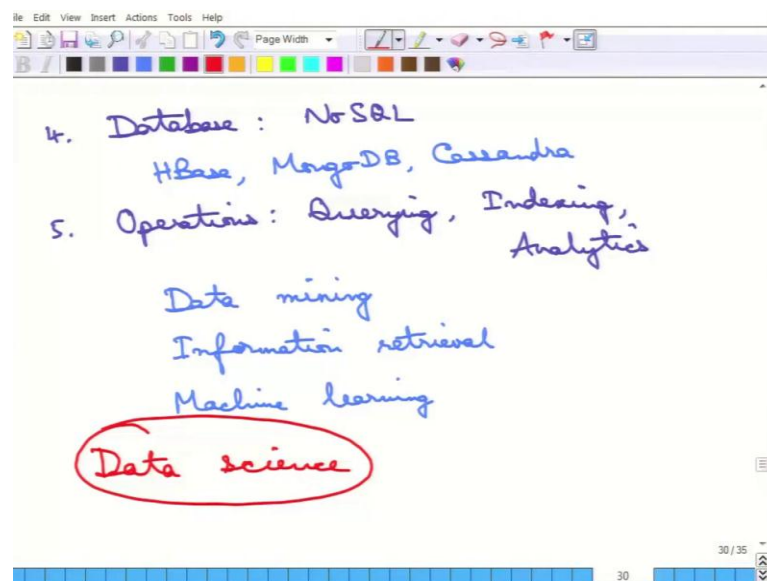 ile Edit View Insert Actions Tools Help
Page Width
B I
4. Database : NoSQL
HBase, MongoDB, Cassandra
5. Operations : Querying, Indexing,
Analytics
Data mining
Information retrieval
Machine learning
Data science
30 / 35
30